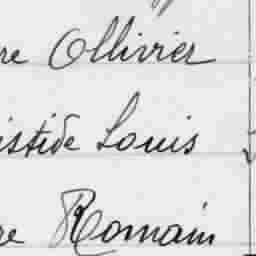 re Ollivier
istide Louis
re Romain